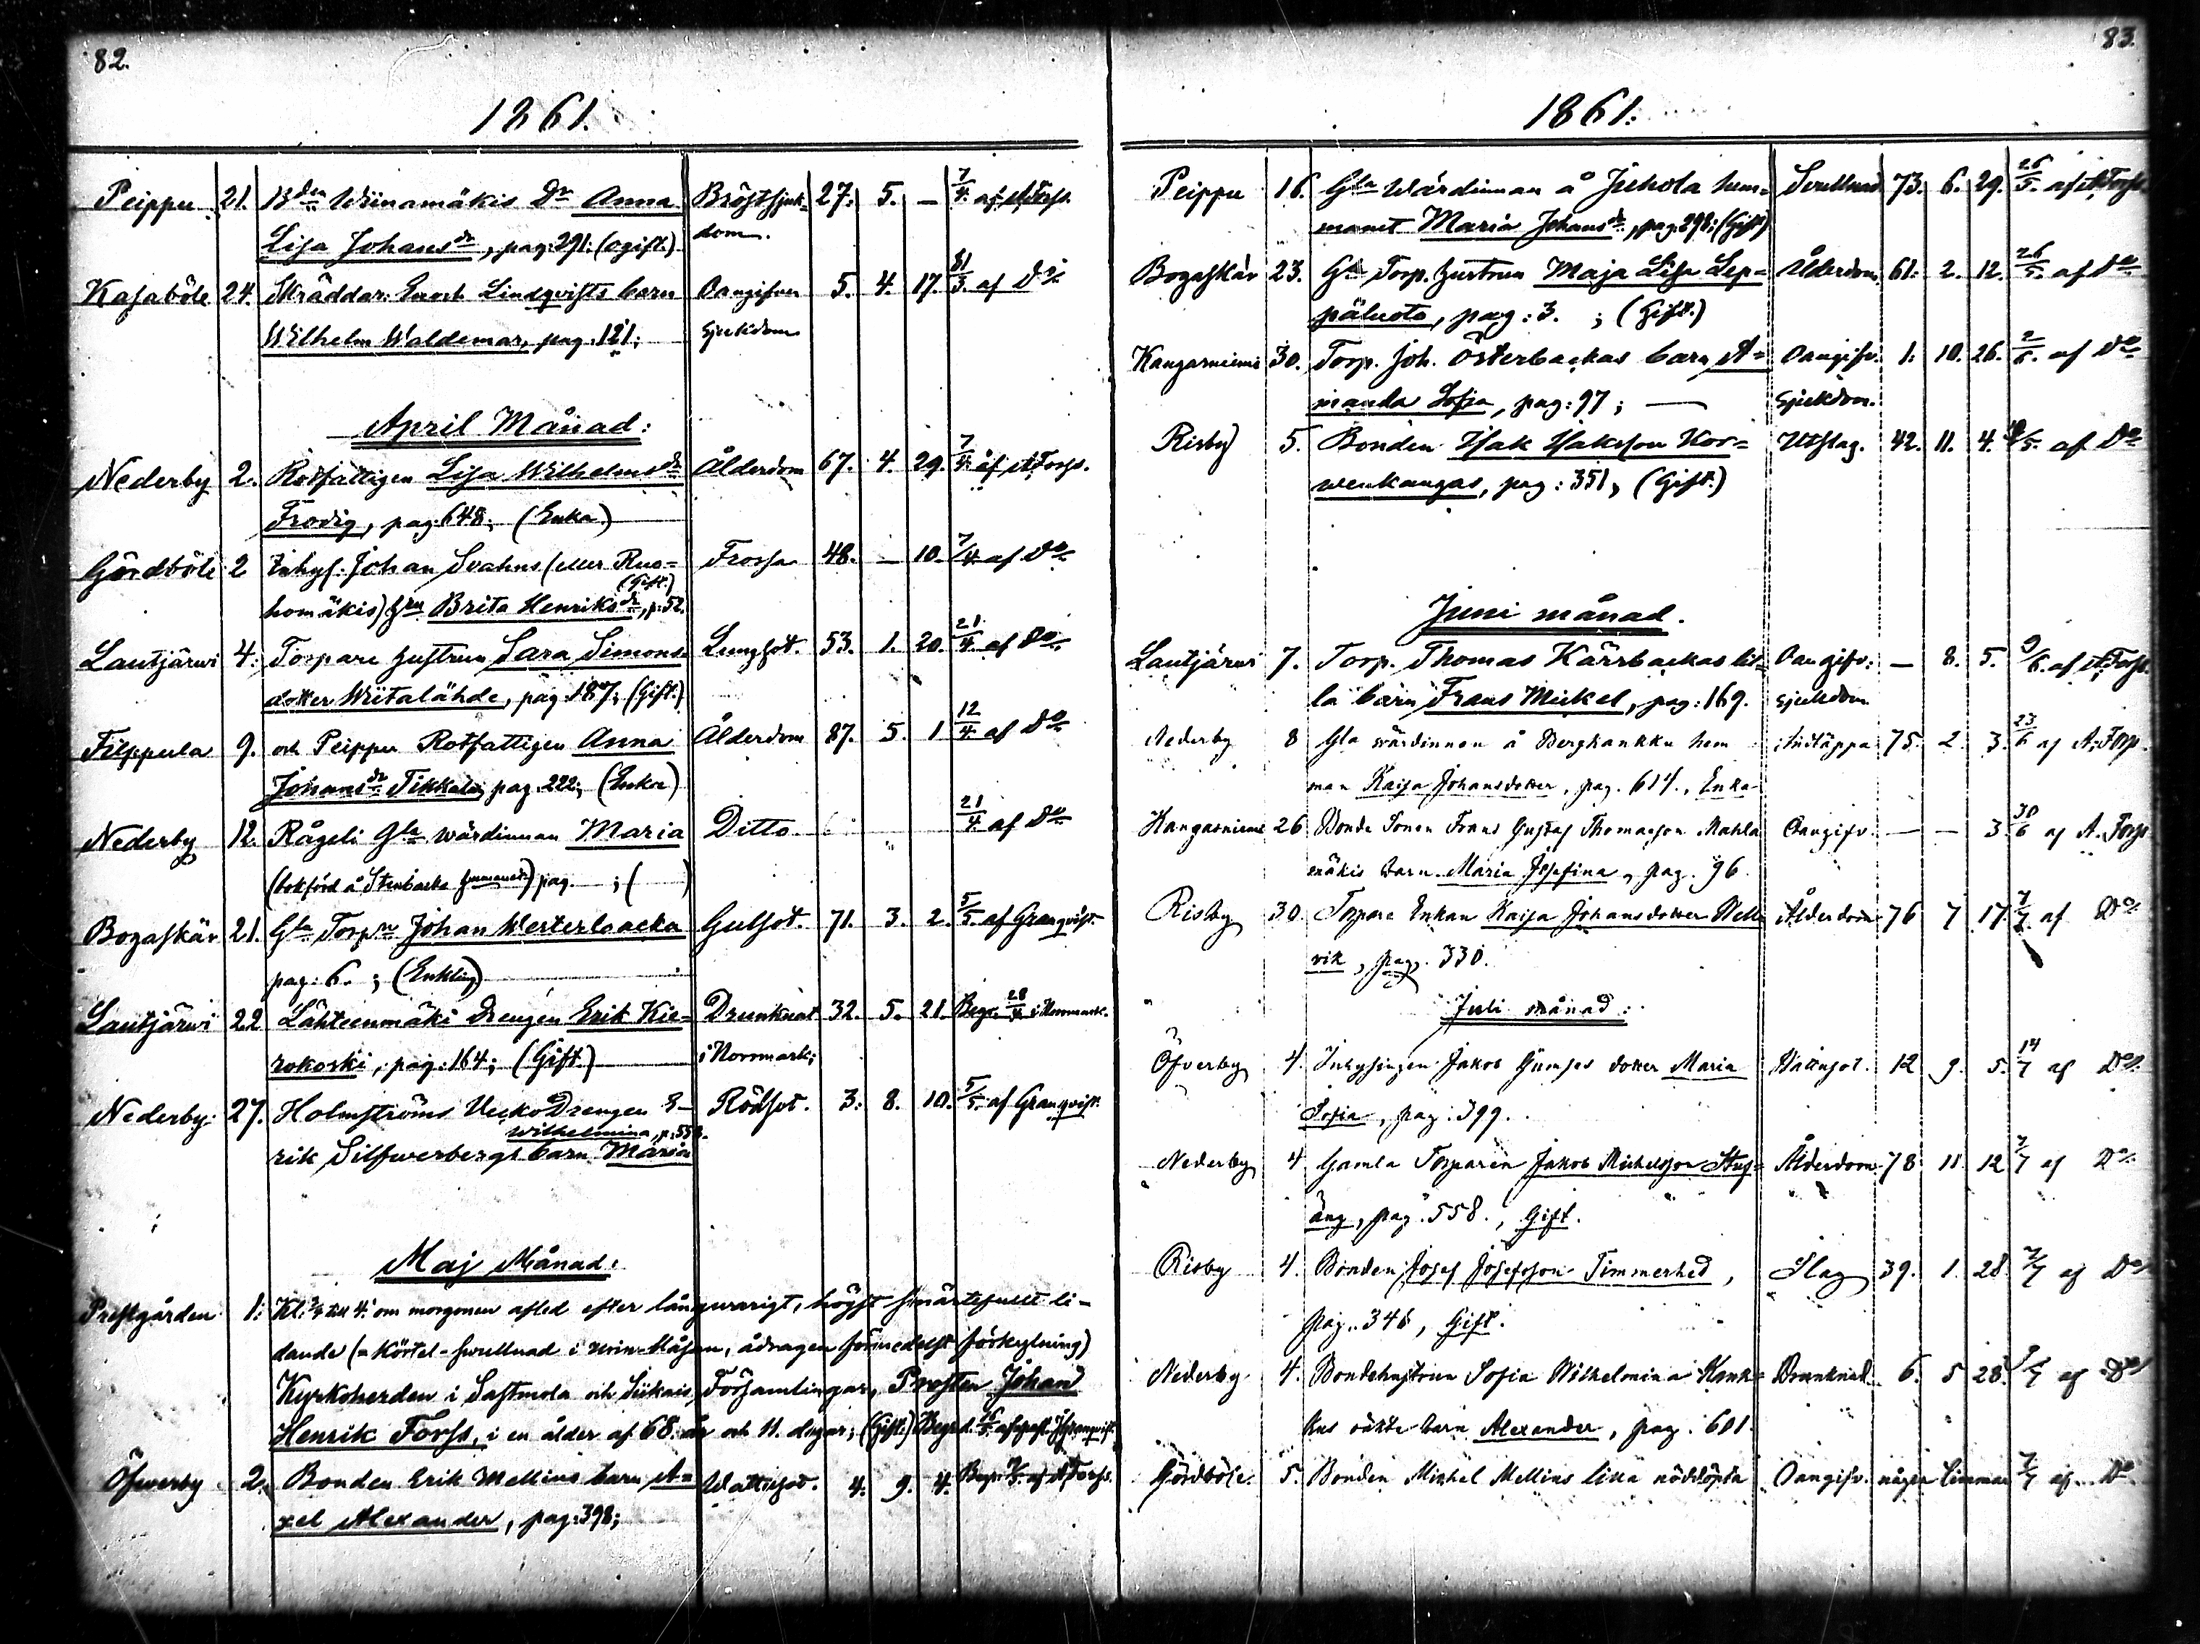 82.
1861.
Peippu 21. B:den Wiinamäkis Dr Anna Bröstsjuk- 27. 5. — 7/4. af A Forss.
Lisa Johansdr, pag: 291: (ogift.) dom.
Kasaböle 24. Skräddar: Enoch Lindqvists barn Oangifven 5. 4. 17. 31/3. af Do
Wilhelm Waldemar, pag. 121; Sjukdom
April Månad:
Nederby 2. Rotfattigen Lisa Wilhelmsdr Ålderdom 67. 4. 29. 7/4. af A Forss.
Frodig, pag: 648; (Enka)
Gördböle 2 Inhys. Johan Svahns (eller Ruo- Frossa 48. — 10. 7/4. af Do
(Gift.)
homäkis) Hru Brita Henriksdr, p: 52.
Lautjärwi 4. Torpare hustrun Sara Simons- Lungsot. 53. 1. 20. 21/4. af Do
dotter Wiitalähde, pag. 187; (Gift.)
Filppula 9. och Peippu Rotfattigen Anna Ålderdom 87. 5. 1 12/4. af Do
Johansdr Tikkala, pag. 222; (Enka)
Nederby 12. Rågeli Gla wärdinnan Maria Ditto. 21/4. af Do
(bokförd å Stenbacka hemmanet) pag. ; ( )
Bogaskär 21. Gla Torpn Johan Westerbacka Gulsot. 71. 3. 2. 5/5. af Granqvist.
pag: 6. ; (Enkling)
Lautjärwi 22 Lähteenmäki Drengen Erik Kie- Drunknat 32. 5. 21. Begr. 28/4. i Norrmark.
rokoski, pag: 164; (Gift.) i Norrmark;
Nederby 27. Holmströms Drengen E- Rödsot. 3. 8. 10. 5/5. af Granqvist.
Wilhelmina, p: 558.
rik Silfwerbergs barn Maria
Maj Månad:
Prestgården 1: Kl: 3/4 till 4. om morgonen afled efter långvarigt, högst smärtefullt li-
dande (= Körtel-swullnad i urin-blåsan, ådragen förmedelst förkylning)
Kyrkoherden i Sastmola och Siikais Församlingar, Prosten Johan
Henrik Forss, i en ålder af 68. år och 11. dagar; (Gift.) Begrd.
Öfwerby 2. Bonden Erik Mellins barn A- Wattusot. 4. 9. 4. Begr. af A Forss.
xel Alexander, pag: 398;
83.
1861:
Peippu 16. Gla Wärdinnan å Juhola hem- Swullnad 73. 6. 29. 26/5. af A Forss.
manet Maria Johansdr, pag: 298; (Gift)
Bogaskär 23. Gla Torp. hustrun Maja Lisa Lep- Ålderdom 61. 2. 12. 26/5. af Do
päluoto, pag: 3. ; (Gift.)
Kangasniemi 30. Torp. Joh. Österbackas barn A- Oangifv. 1. 10. 26. 2/6. af Do
manda Sofia, pag: 97; — Sjukdom.
Risby 5. Bonden Isak Isaksson Kor- Utslag. 42. 11. 4. af Do
wenkangas, pag: 351, (Gift.)
Juni månad.
Lautjärwi 7. Torp. Thomas Kärrbackas lil- Oangifv: — 8. 5. 9/6. af A Forss.
la barn Frans Mickel, pag: 169. Sjukdom
Nederby 8 Gla wärdinnan å Bergkankku hem Andtäppa 75. 2. 3. 23/6 af A. Forss.
man Kaisa Johansdotter, pag. 614., Enka
Kangasniemi 26 Bonde Sonen Frans Gustaf Thomasson Mahla Oangifv. — — 3. 30/6 af A. Forss
mäkis barn Maria Josefina, pag. 96.
Risby 30. Torpare Enkan Kaisa Johansdotter Hell- Ålderdom 76 7 17 7/7 af Do
vik, pag. 330.
Juli månad:
Öfverby 4. Inhysingen Jakob dotter Maria Hatusot. 12 9. 5. 14/7 af Do
Sofia, pag: 399.
Nederby 4 Gamla Torparen Jakob Michelsson Stug- Ålderdom 78 11 12 7/7 af Do
äng, pag. 558., Gift.
Risby 4. Bonden Josef Josefsson Timmerhed, Slag 39. 1. 28. 7/7 af Do
pag. 346, Gift.
Nederby 4. Bondehustrun Sofia Wilhelmina Kank- Drunknad. 6. 5 28. 7/7 af Do
kus oäkta barn Alexander, pag. 601.
Gördböle. 5. Bonden Michel Mellins lilla nöddöpta Oangifv. någon timmar 7/7 af Do